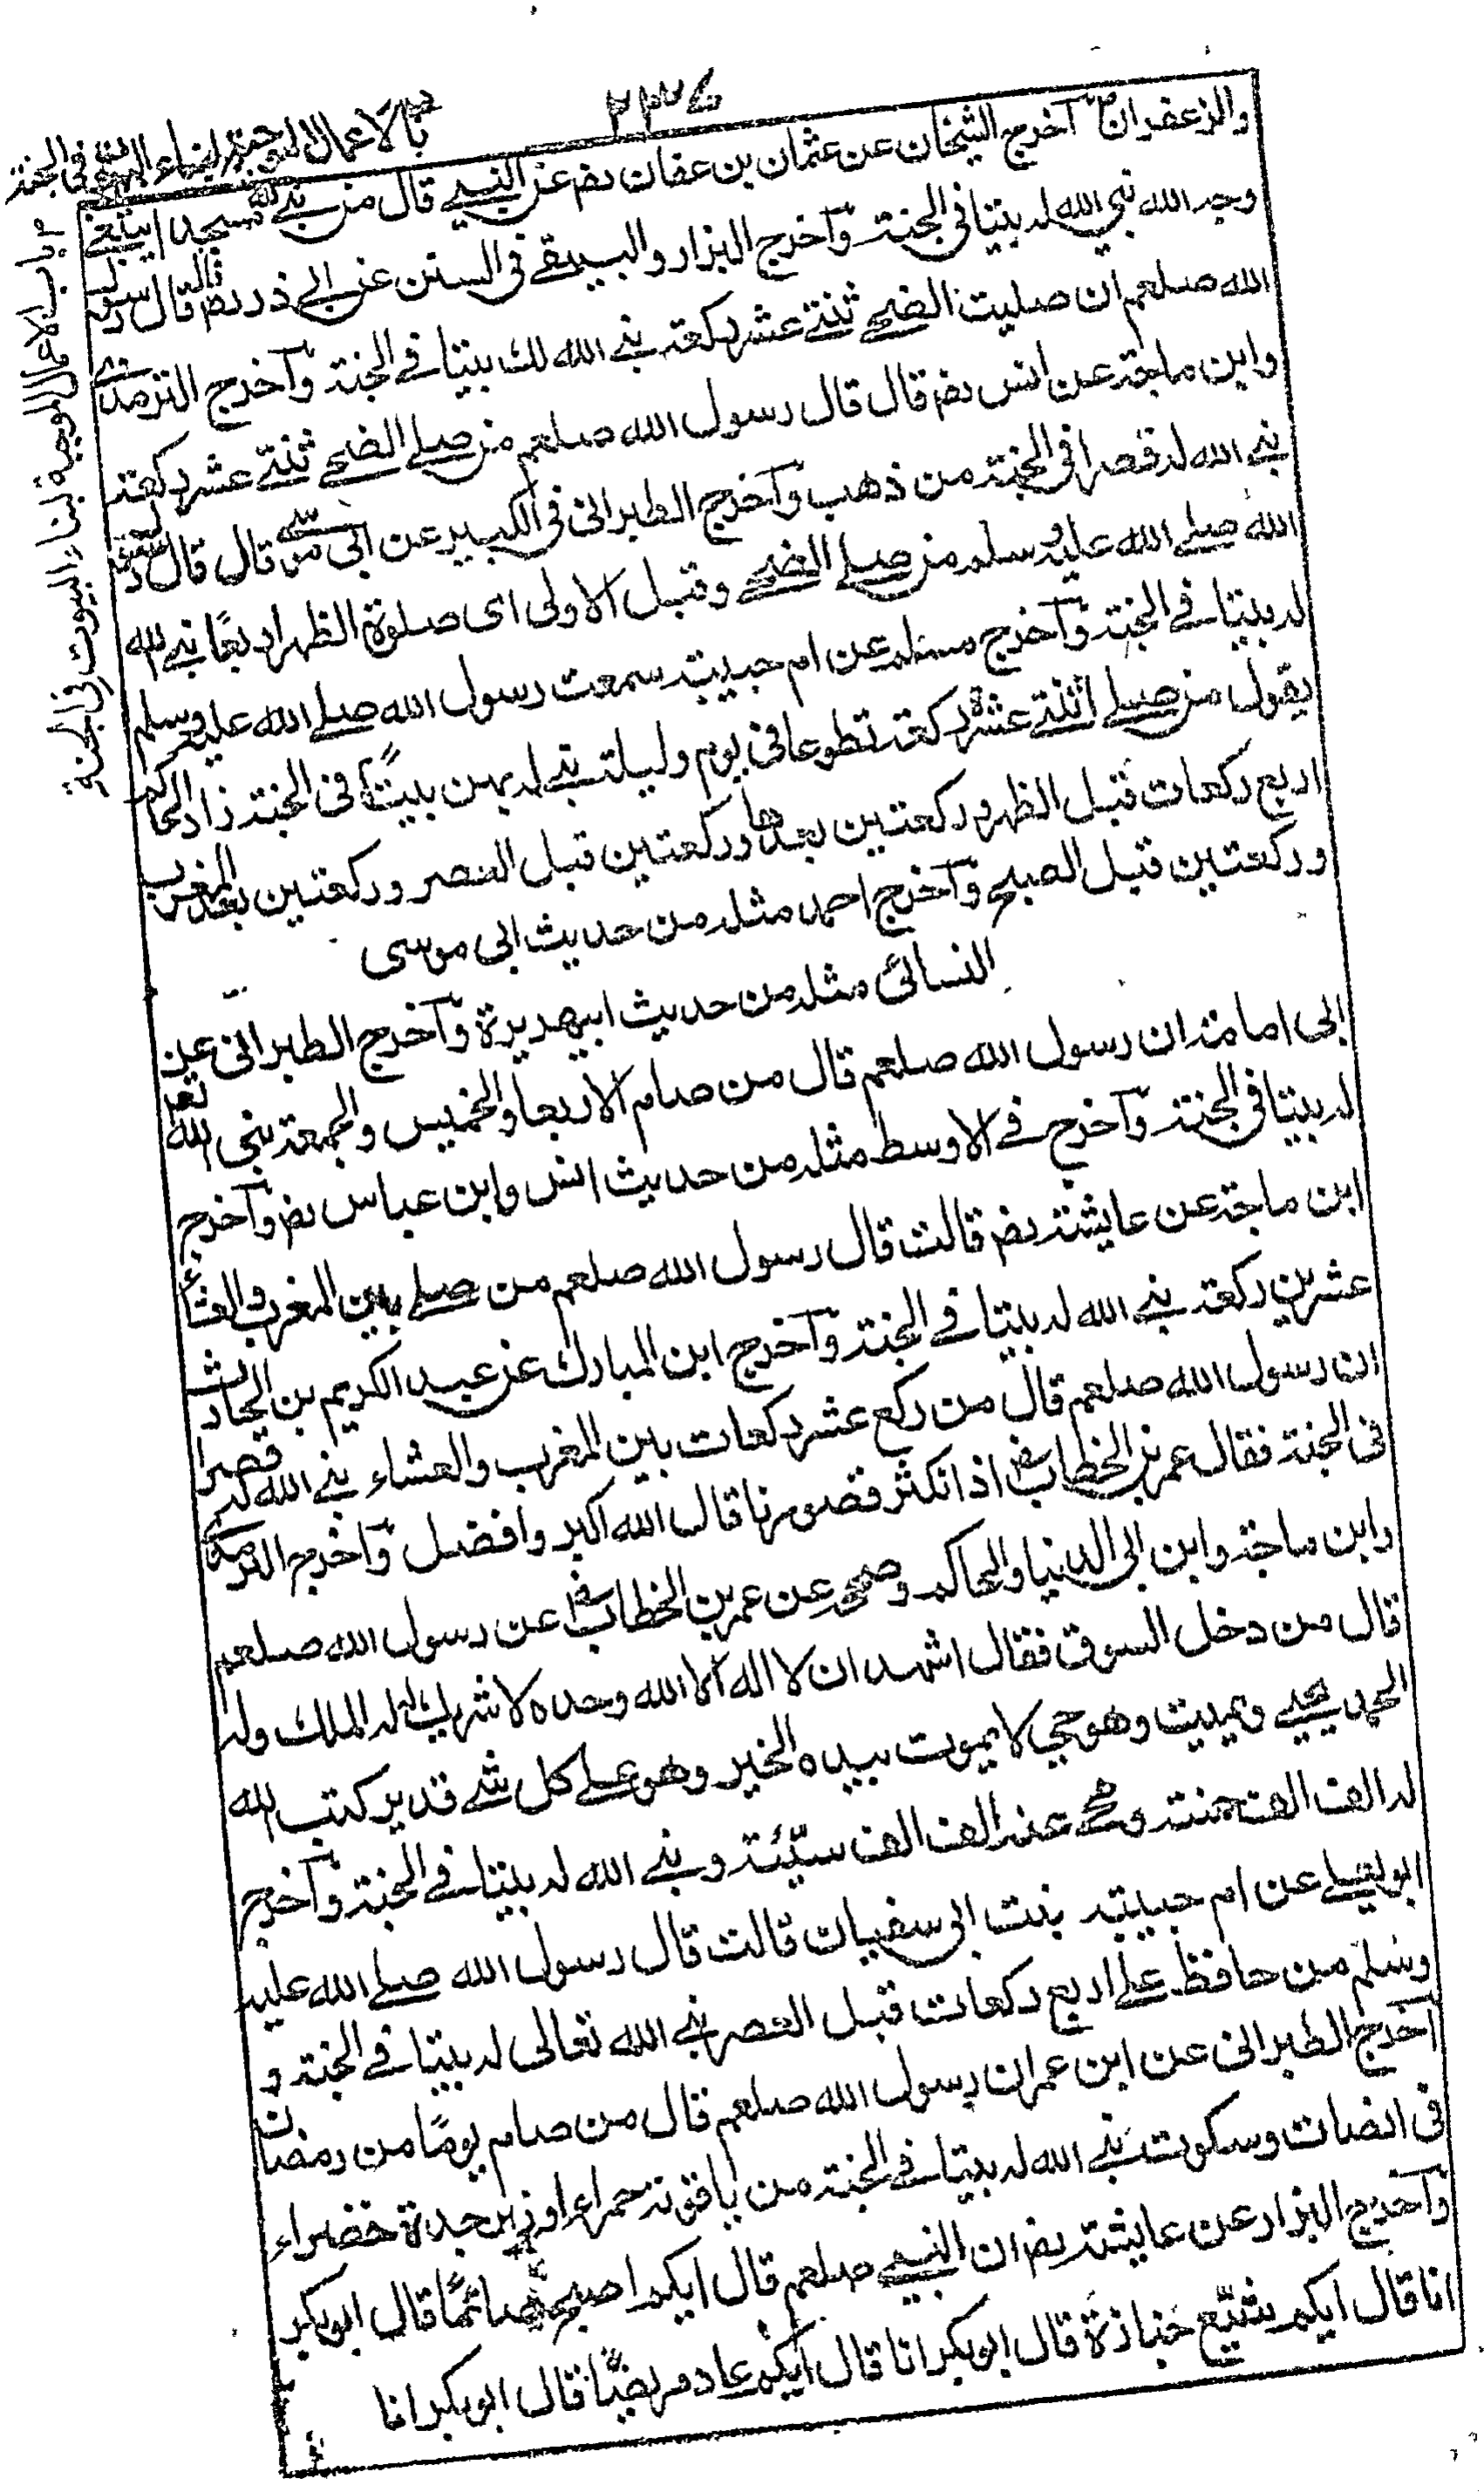 ٢٣٤
باب الاعمال الموجبة لبناء البيوت فى الجنة
والزعفران آخرج الشيخان عن عثمان بن عفان رضـ عن النبي قال من بنى لله مسجدا يبتغى
وجه الله بنى الله له بيتا فى الجنة وآخرج البزار والبيهقى فى السنن عن ابى ذر رضـ قال قال رسول
الله صلعم ان صليت الضحى ثنتى عشر ركعة بنى الله لك بيتا فى الجنة وآخرج الترمذى
وابن ماجة عن انس رضـ قال قال رسول الله صلعم من صلى الضحى ثنتى عشر ركعة
بنى الله له قصرا فى الجنة من ذهب وآخرج الطبرانى فى الكبير عن ابى موسى قال قال رسول
الله صلى الله عليه وسلم من صلى الضحى وقبل الاولى اى صلوة الظهر اربعًا بنى الله
له بيتا فى الجنة وآخرج مسلم عن ام حبيبة سمعت رسول الله صلى الله عليه وسلم
يقول من صلى اثنتى عشرة ركعة تطوعا فى يوم وليلة بنى له بهن بيتًا فى الجنة زاد الحاكم
اربع ركعات قبل الظهر وركعتين بعدها وركعتين قبل العصر وركعتين بعد المغرب
وركعتين قبل الصبح وآخرج احمد مثله من حديث ابى موسى
النسائى مثله من حديث ابيهريرة وآخرج الطبرانى عن
ابى امامة ان رسول الله صلعم قال من صام الاربعا والخميس والجمعة بنى الله تعـ
له بيتا فى الجنة وآخرج فى الاوسط مثله من حديث انس وابن عباس رضـ وآخرج
ابن ماجة عن عايشة رضـ قالت قال رسول الله صلعم من صلى بين المغرب والعشاء
عشرين ركعة بنى الله له بيتا فى الجنة وآخرج ابن المبارك عن عبد الكريم بن الحارث
ان رسول الله صلعم قال من ركع عشر ركعات بين المغرب والعشاء بنى الله له قصرا
فى الجنة فقال عمر بن الخطاب رضـ اذا نكثر قصورنا قال الله اكبر وافضل وآخرج الترمذى
وابن ماجة وابن ابى الدنيا والحاكم وصححه عن عمر بن الخطاب رضـ عن رسول الله صلعم
قال من دخل السوق فقال اشهد ان لا اله الا الله وحده لا شريك له له الملك وله
الحمد يحيى ويميت وهو حي لا يموت بيده الخير وهو على كل شئ قدير كتب الله
له الف الف حسنة ومحى عنه الف الف سيّئة وبنى الله له بيتا فى الجنة وآخرج
ابو يعلى عن ام حبيبة بنت ابى سفيان قالت قال رسول الله صلى الله عليه
وسلم من حافظ على اربع ركعات قبل العصر بنى الله تعالى له بيتا فى الجنة و
آخرج الطبرانى عن ابن عمر ان رسول الله صلعم قال من صام يومًا من رمضان
فى انصات وسكوت بنى الله له بيتا فى الجنة من ياقوتة حمراء او زبرجدة خضراء
وآخرج البزار عن عايشة رضـ ان النبي صلعم قال ايكم اصبح صائمًا قال ابو بكر
انا قال ايكم شيّع جنازة قال ابو بكر انا قال ايكم عاد مريضًا قال ابو بكر انا
باب الاعمال الموجبة لبناء البيوت فى الجنة